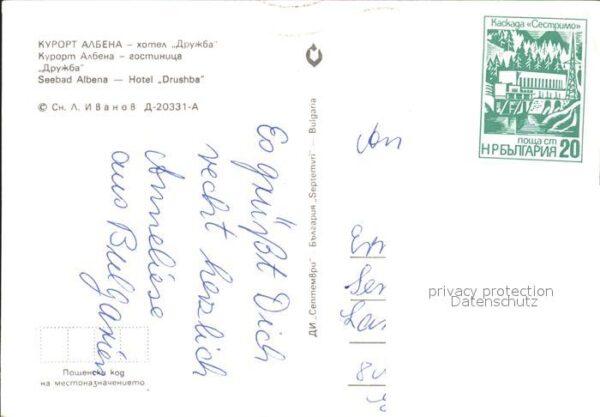 КУРОРТ АЛБЕНА — хотел „Дружба"
Курорт Албена — гостиница
„Дружба"
Seebad Albena — Hotel „Drushba"
© Сн. Л. Иванов Д-20331-А
Es grüßt Dich
recht herzlich
Anneliese
aus Bulgarien
Пощенски код
на местоназначението
ДИ „Септември" — България „Septemvri" — Bulgaria
Каскада «Сестримо»
поща ст
НР БЪЛГАРИЯ 20
An
privacy protection
Datenschutz